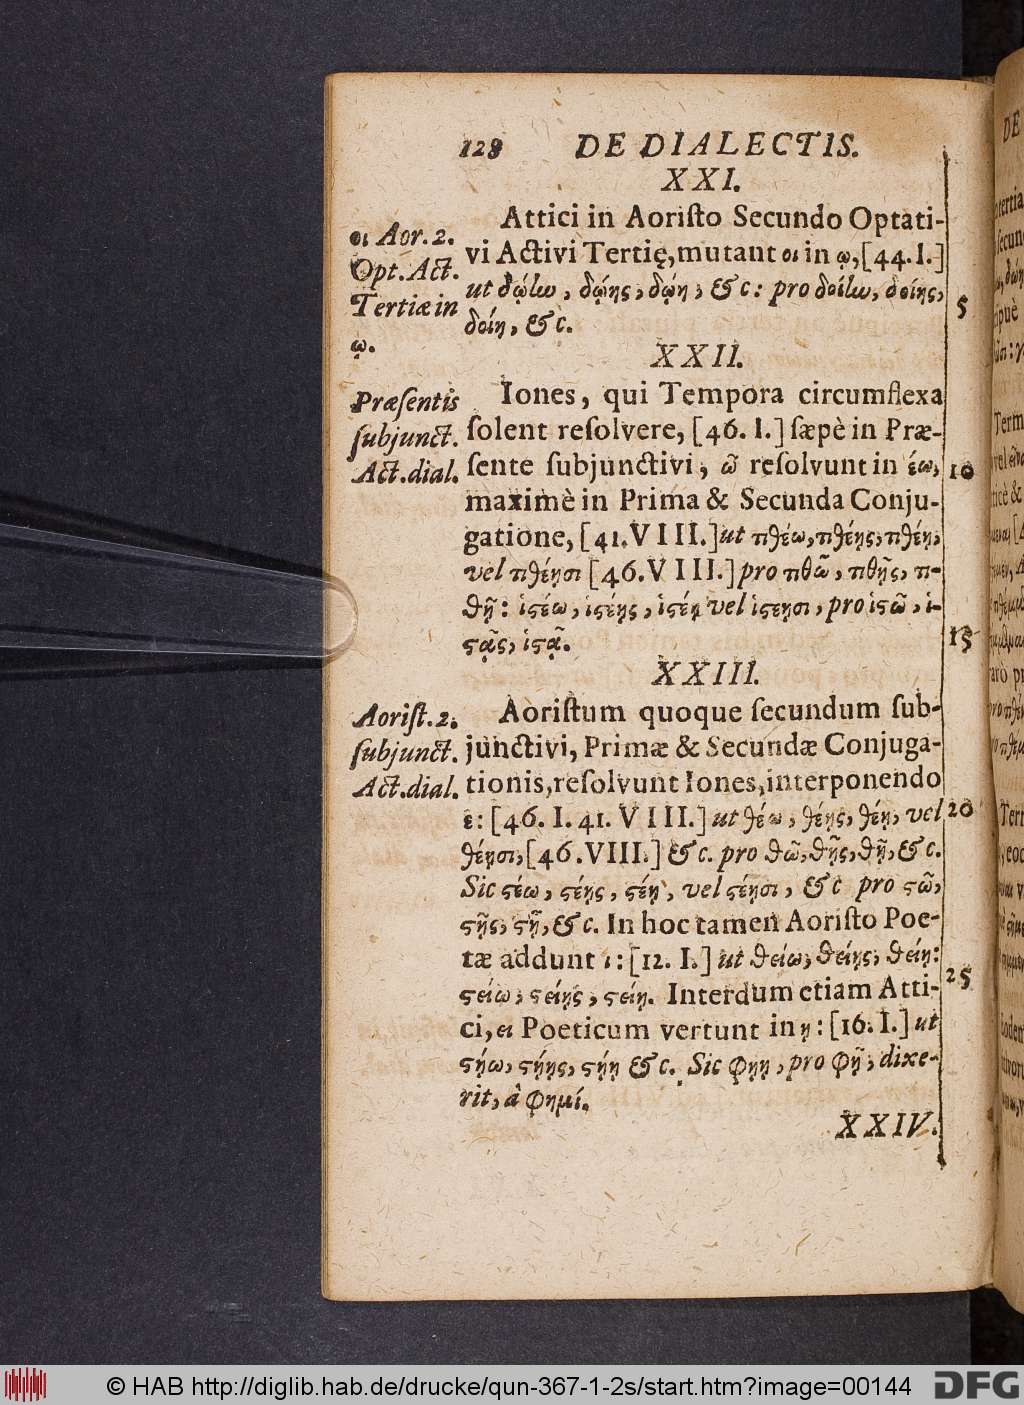 128 DE DIALECTIS.
XXI.
οι Aor. 2.
Opt. Act.
Tertiæ in
ῳ.
Attici in Aoriſto Secundo Optati-
vi Activi Tertię, mutant οι in ῳ, [44. I.]
ut δῴlω, δῴης, δῴη, &c: pro δοίlω, δοίης,
δοίη, &c.
5
XXII.
Præſentis
ſubjunct.
Act. dial.
Iones, qui Tempora circumflexa
ſolent reſolvere, [46. I.] ſæpè in Præ-
ſente ſubjunctivi, ῶ reſolvunt in έω,
maximè in Prima & Secunda Conju-
gatione, [41. VIII.] ut πθέω, πθέῃς, πθέῃ,
vel πθέῃσι [46. VIII.] pro πθῶ, πθῇς, π-
θῇ: ἱϛέω, ἱϛέῃς, ἱϛέῃ vel ἱϛεῃσι, pro ἱϛῶ, ἱ-
ϛᾷς, ἱϛᾷ.
10
15
XXIII.
Aoriſt. 2.
ſubjunct.
Act. dial.
Aoriſtum quoque ſecundum ſub-
junctivi, Primæ & Secundæ Conjuga-
tionis, reſolvunt Iones, interponendo
ε: [46. I. 41. VIII.] ut θέω, θέῃς, θέῃ, vel
θέῃσι, [46. VIII.] &c. pro θῶ, θῇς, θῇ, &c.
Sic ϛέω, ϛέῃς, ϛέῃ, vel ϛέῃσι, &c pro ϛῶ,
ϛῇς, ϛῇ, &c. In hoc tamen Aoriſto Poe-
tæ addunt ι: [12. I.] ut θείω, θείῃς, θείῃ:
ϛείω, ϛείῃς, ϛείῃ. Interdum etiam Atti-
ci, ει Poeticum vertunt in η: [16. I.] ut
ϛήω, ϛήῃς, ϛήῃ &c. Sic φήῃ, pro φῇ, dixe-
rit, à φημί.
20
25
XXIV.
© HAB http://diglib.hab.de/drucke/qun-367-1-2s/start.htm?image=00144
DFG